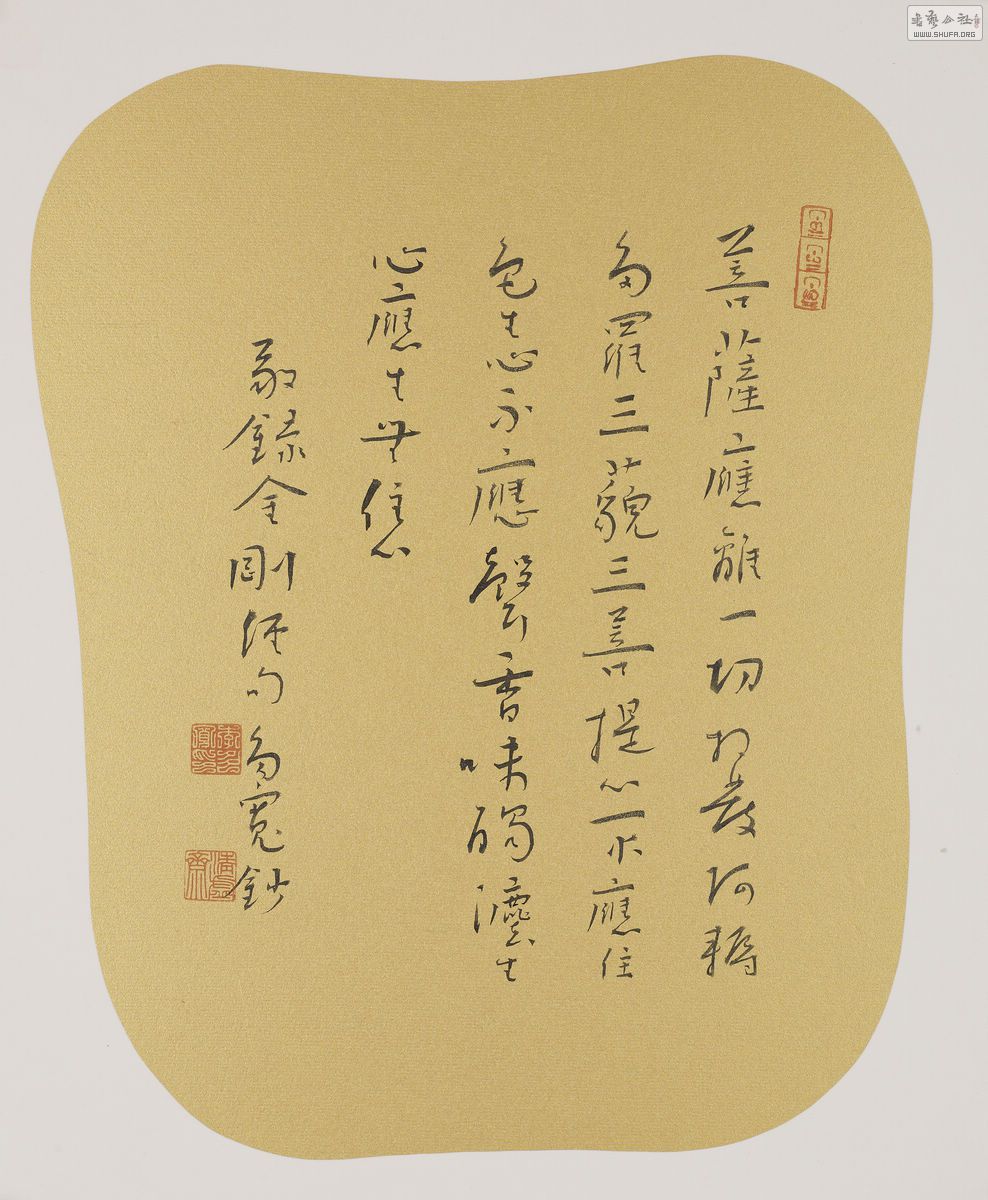 菩薩應離一切相發阿耨
多羅三藐三菩提心不應住
色生心不應聲香味觸灋生
心應生無住心
敬錄金剛經句 寬鈔
書藝公社
WWW.SHUFA.ORG